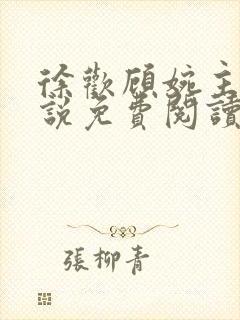 徐歡顧婉主
說免費閱讀
張柳青